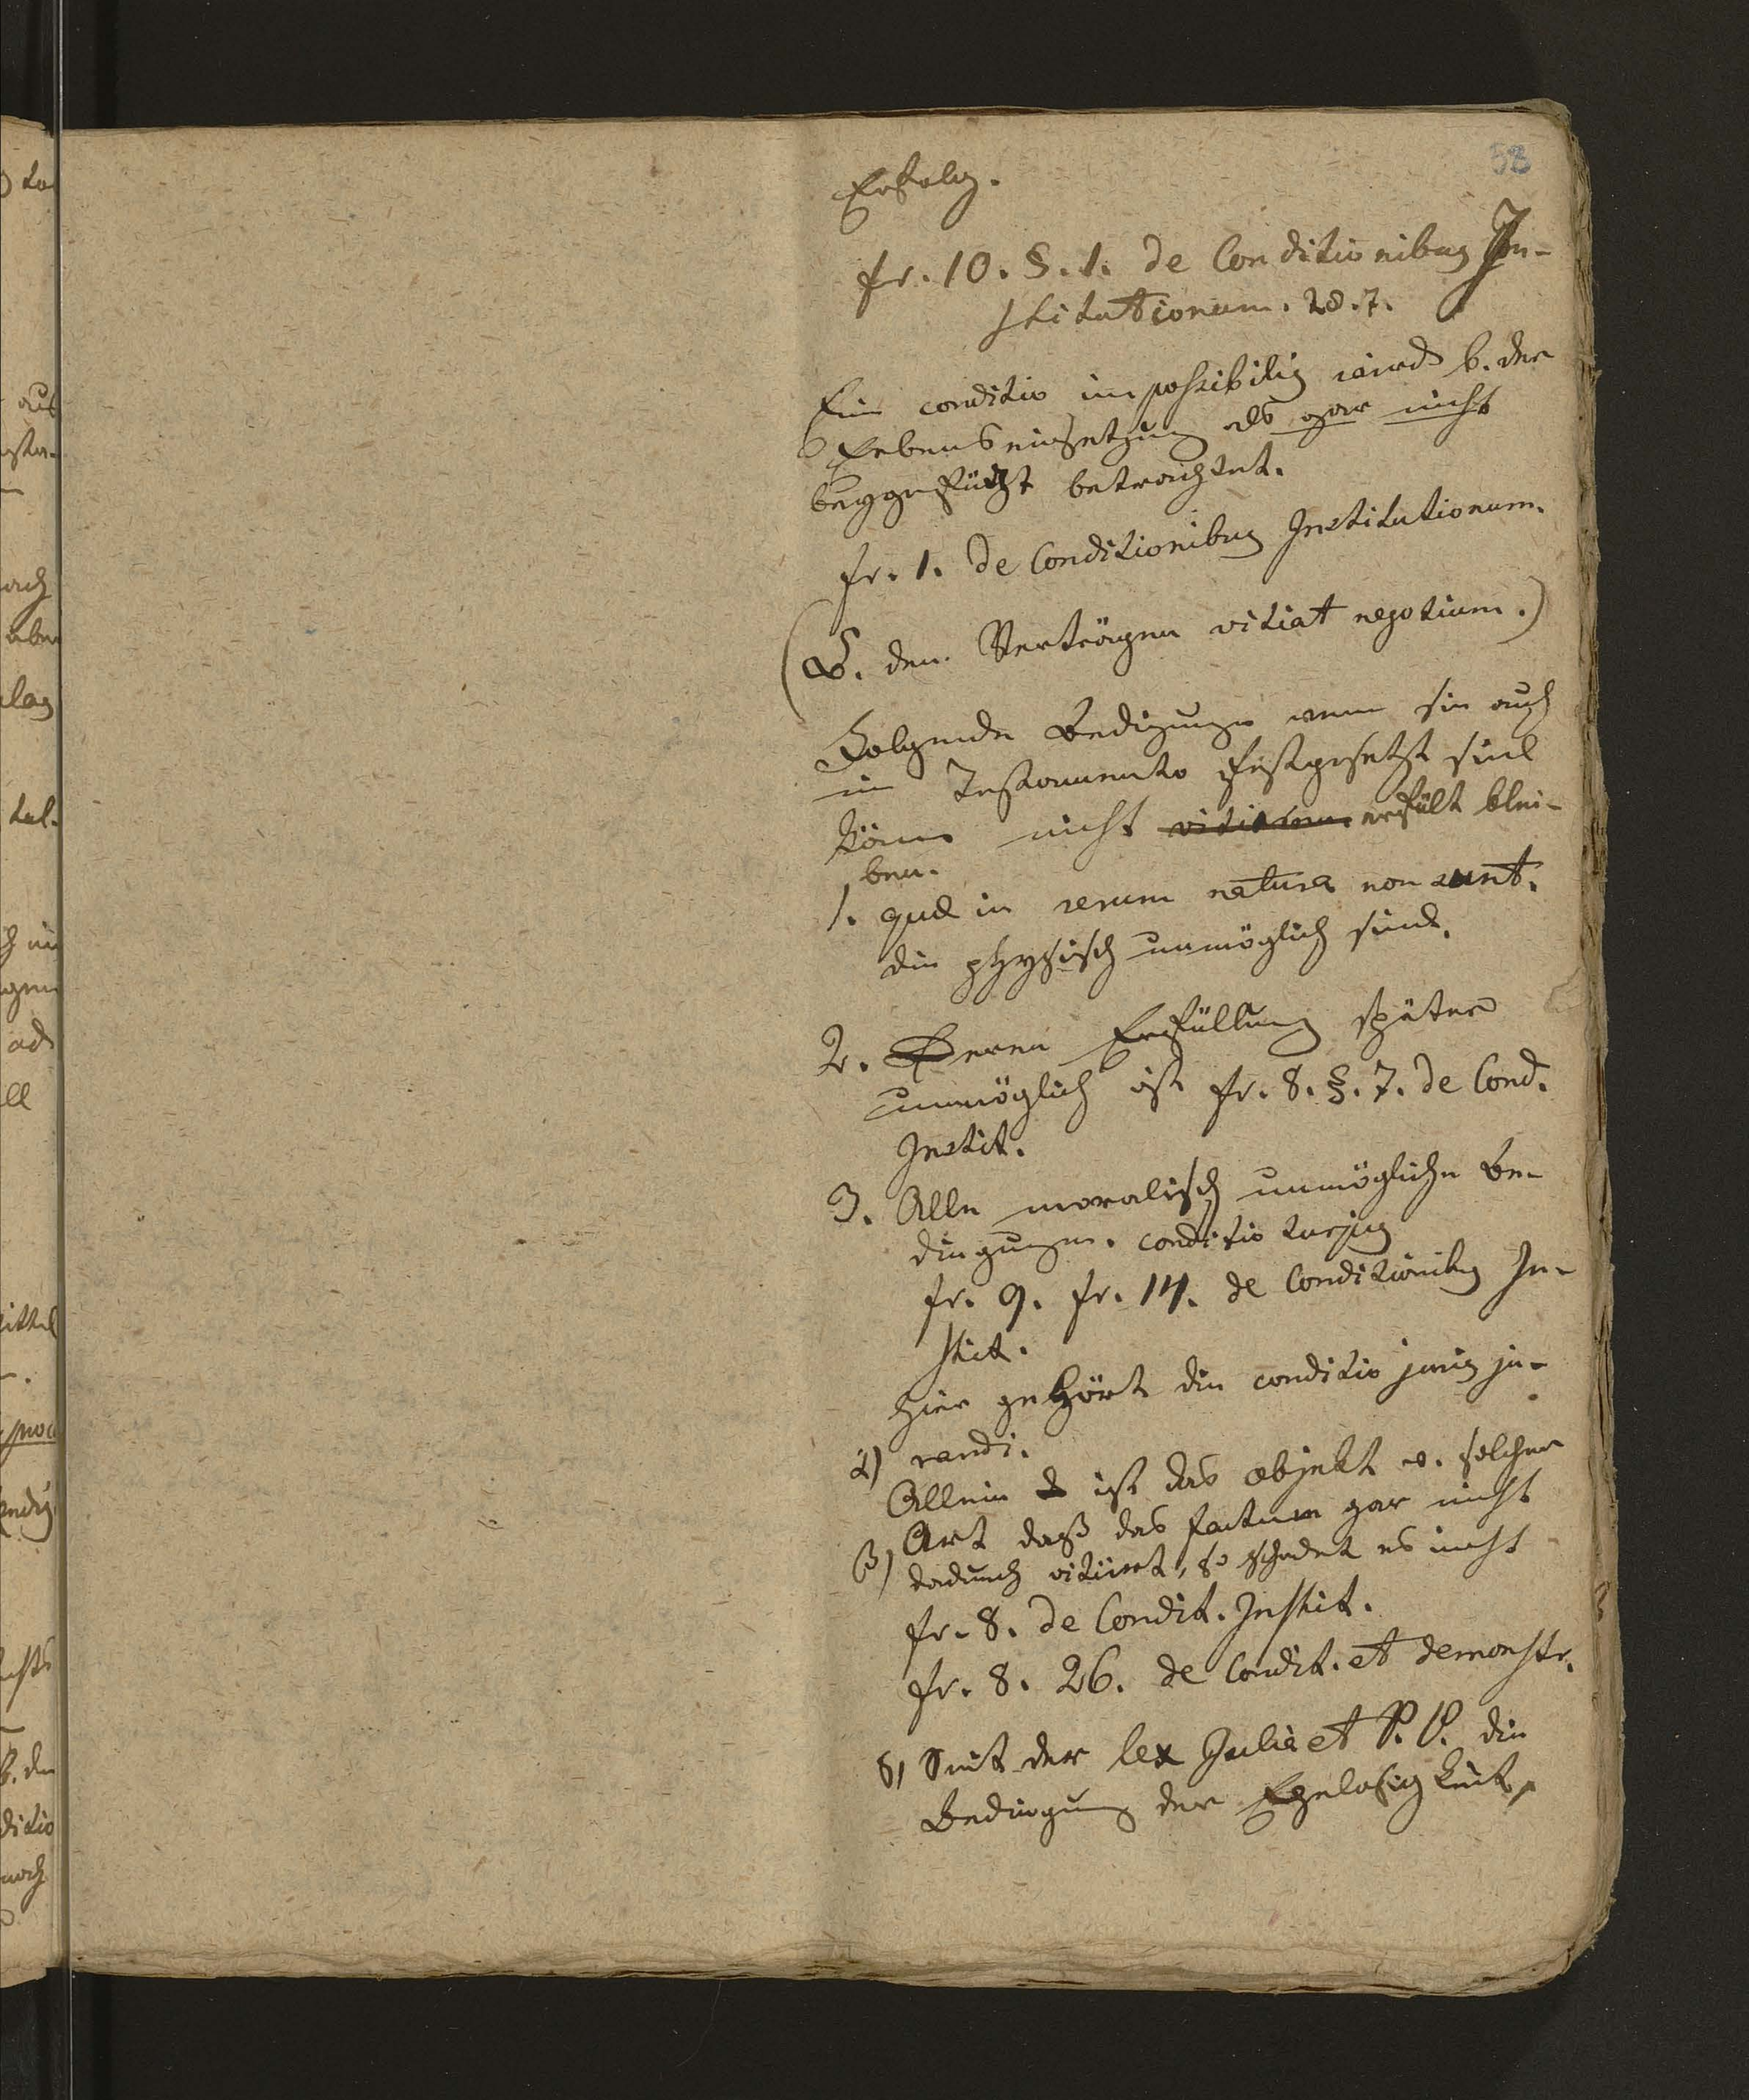 58
Erfolg.
fr. 10. §. 1. de Conditionibus In-
stitutionum. 28. 7.
Ein conditio impossibilis wird b. der
Erbenseinsetzung als gar nicht
beygefügt betrachtet.
fr. 1. de Conditionibus Institutionum.
(B. den Verträgen vitiat negotium.)
Folgende Bedigungen wenn sie auch
in Testamento festgesetzt sind
könen nicht erfült blei-
ben.
1. quae in rerum natura non sunt.
die physisch unmöglich sind.
2. Deren Erfüllung später
unmöglich ist fr. 8. §. 7. de Cond.
Instit.
3. Alle moralisch unmögliche Be-
dingungen. conditio turpis
fr. 9. fr. 14. de Conditionibus In-
stit.
hier gehört die conditio juris ju-
α) randi.
Allein ist das objekt v. solcher
Art daß das factum gar nicht
β) dadurch vitiirt, so schadet es nicht
fr. 8. de Condit. Instit.
fr. 8. 26. de Condit. et demonstr.
δ) Seit der lex Julia et P. P. die
Bedingung der Ehelosigkeit,